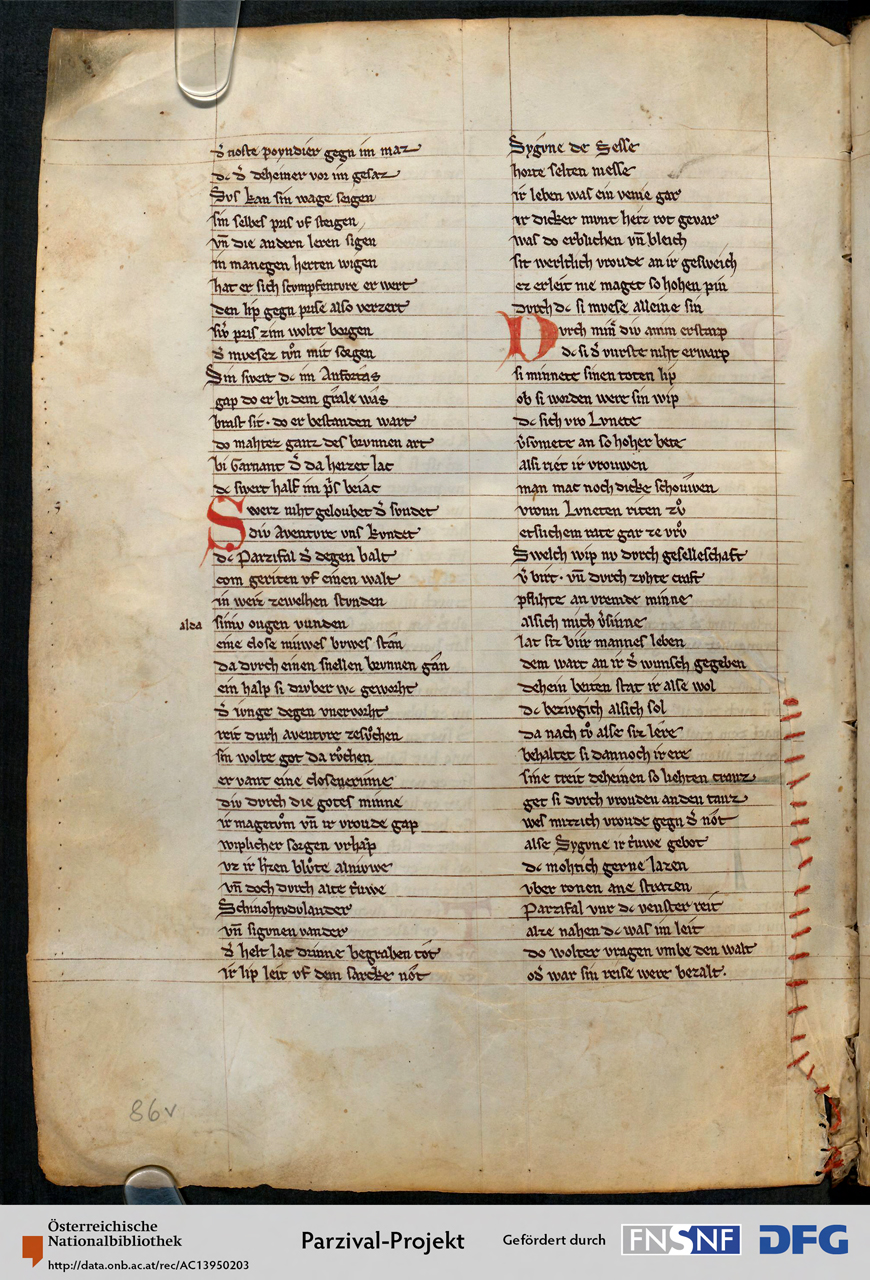 d̄ tioste poynder gegn im maz
dc d̄ deheiner vor im gesaz
Svs kan sin wage seigen
sin selbes pris vf steigen
vn̄ die andern leren sigen
in manegen herten wigen
hat er sich scompfenture erwert
den lip gegn prise also verzert
sw̄ pris zim wolte borgen
d̄ mvesez tvͦn mit sorgen
Sin swert dc im Anfortas
gap do er bi dem grâle was
brast sit · do er bestanden wart
do mahtez ganz des brvnnen art
bi Garnant d̄ da heizet lac
dc swert half im p̄s beiac
Swerz niht geloubet d̄ svndet
div Aventvre vns kvndet
dc Parzifal d̄ degen balt
com geriten vf einen walt
in weiz zewelhen stvnden
alda siniv ougen vunden
eine close niuwes bvwes stân
da dvrch einen snellen brvnnen gân
ein halp si drvber wc geworht
d̄ ivnge degen vnervorht
reit durh aventvre zesvͦchen
sin wolte got da rvͦchen
er vant eine closenerinne
div dvrch die gotes minne
ir magetuͦm vn̄ ir vroude gap
wiplicher sorgen vrhap
vz ir h̄zen blvͦte alniuwe
vn̄ doch dvrch alte t̄uwe
Schinohtvdvlander
vn̄ sigvnen vander
d̄ helt lac drinne begraben tôt
ir lip leit vf dem sarcke nôt
Sygvne de Sesse
horte selten messe
ir leben was ein venie gar
ir dicker munt heiz rot gevar
was do erblichen vn̄ bleich
sit werltlich vroude an ir gesweich
ez erleit nie maget so hohen pin
dvrch dc si mvese alleine sin
Dvrch min̄ div an im erstarp
dc si d̄ vurste niht erwarp
si minnete sinen toten lip
ob si worden were sin wip
dc sich vro Lvnete
v̄somete an so hoher bete
alsi riet ir vrouwen
man mac noch dicke schouwen
vronn Lvneten riten zvͦ
etslichem rate gar ze vrvͦ
Swelch wip nv dvrch geselleschaft
v̄birt · vn̄ dvrch zvhte craft
pflihte an vremde minne
alsich mich v̄sinne
lat siz biir mannes leben
dem wart an ir d̄ wunsch gegeben
dehein beiten stat ir alse wol
dc beziugich alsich sol
da nach tvͦ alse siz lêre
behaltet si dannoch ir ere
sine treit deheinen so liehten cranz
get si dvrch vrouden anden tanz
wes mizzich vroude gegn d̄ nôt
alse Sygvne ir t̄uwe gebot
dc mohtich gerne lazen
vber ronen ane strazen
Parzifal vur dc venster reit
alze nahen dc was im leit
do wolter vragen vmbe den walt
od̄ war sin reise were bezalt.
86v
Österreichische
Nationalbibliothek
http://data.onb.ac.at/rec/AC13950203
Parzival-Projekt
Gefördert durch
FNSNF
DFG